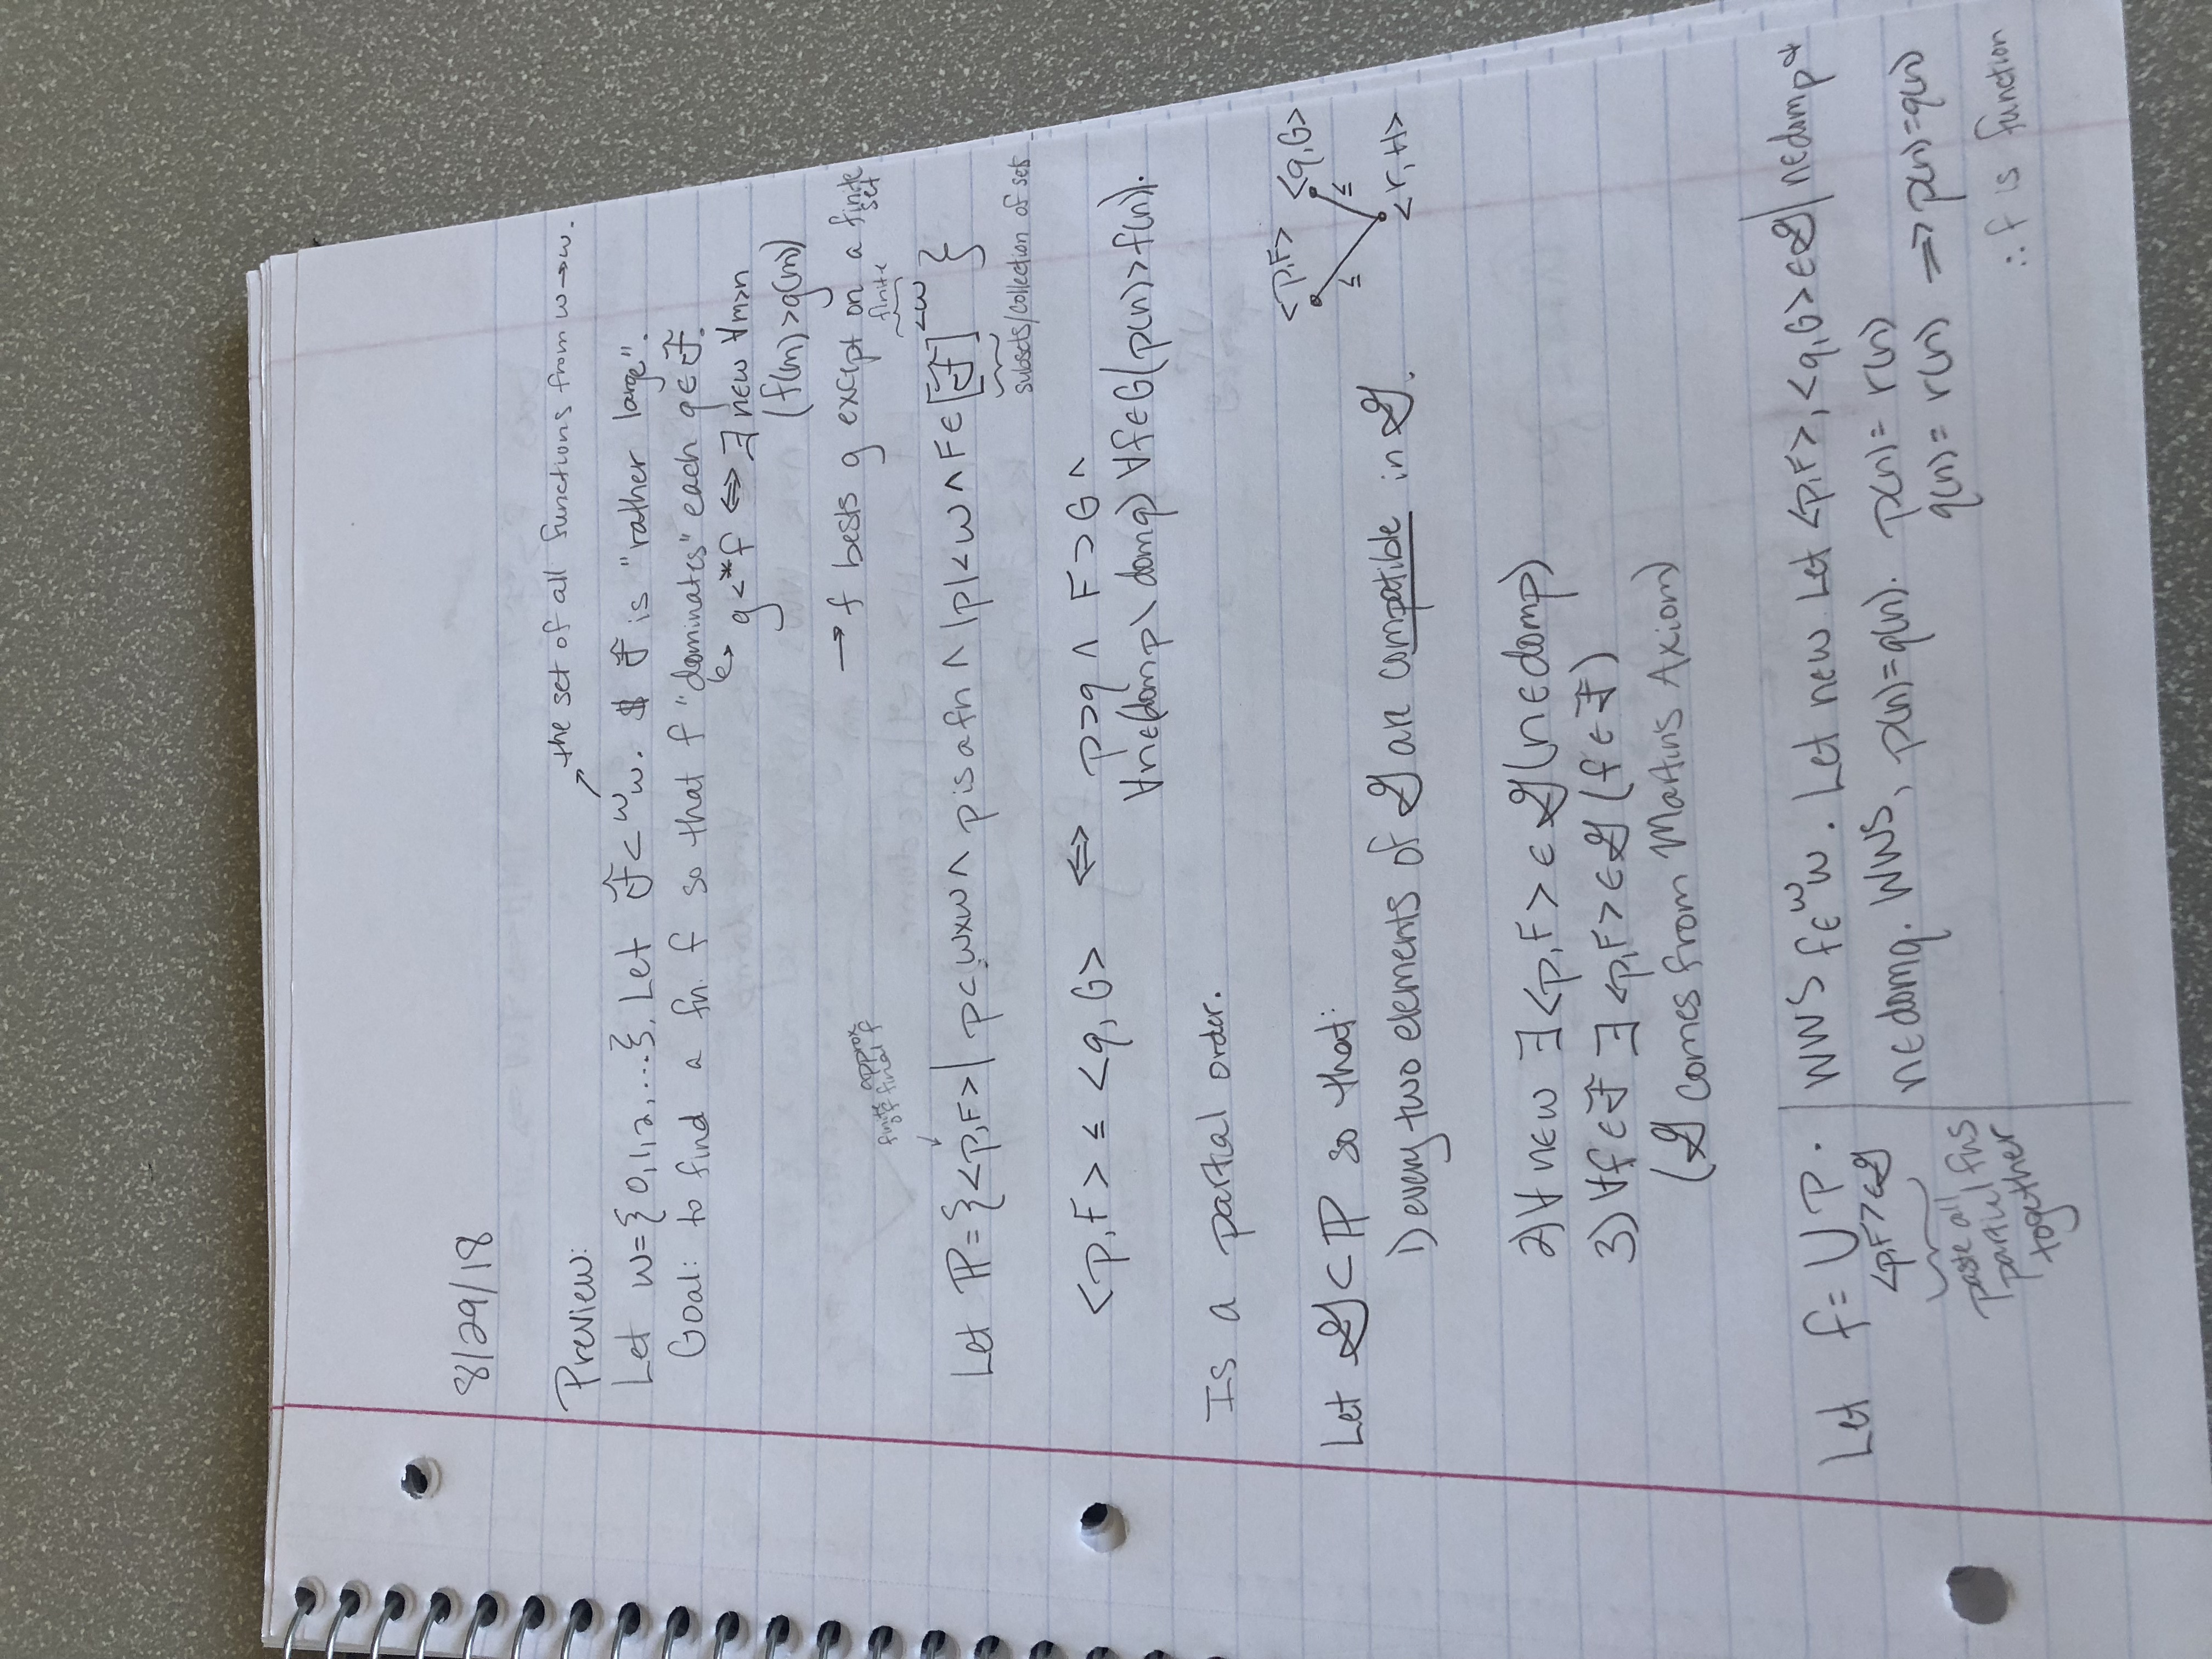 8/29/18
the set of all functions from ω→ω.
Preview:
Let ω={0,1,2,...}. Let ℱ⊂ ^ωω. ℱ is "rather large".
Goal: to find a fn. f so that f "dominates" each g∈ℱ.
↳ g<*f ⟺ ∃n∈ω ∀m>n
(f(m)>g(m))
→ f bests g except on a finite set
finite approx of final f
finite
Let ℙ={<p,F>| p⊂ω×ω ∧ p is a fn ∧ |p|<ω ∧ F∈[ℱ]^{<ω}}
subsets/collection of sets
<p,F> ≤ <q,G> ⟺ p⊃q ∧ F⊃G ∧
∀n∈(dom p \ dom q) ∀f∈G(p(n)>f(n)).
Is a partial order.
<p,F> <q,G>
≤ ≤
<r,H>
Let 𝒢⊂ℙ so that:
1) every two elements of 𝒢 are compatible in 𝒢.
2) ∀n∈ω ∃<p,F>∈𝒢(n∈dom p)
3) ∀f∈ℱ ∃<p,F>∈𝒢(f∈ℱ)
(𝒢 comes from Martin's Axiom)
Let f= ⋃ p.
<p,F>∈𝒢
paste all
partial fns
together
WWS f∈^ωω. Let n∈ω Let <p,F>,<q,G>∈𝒢| n∈dom p &
n∈dom q. WWS, p(n)=q(n). p(n)=r(n)
q(n)=r(n) ⟹ p(n)=q(n)
∴ f is function